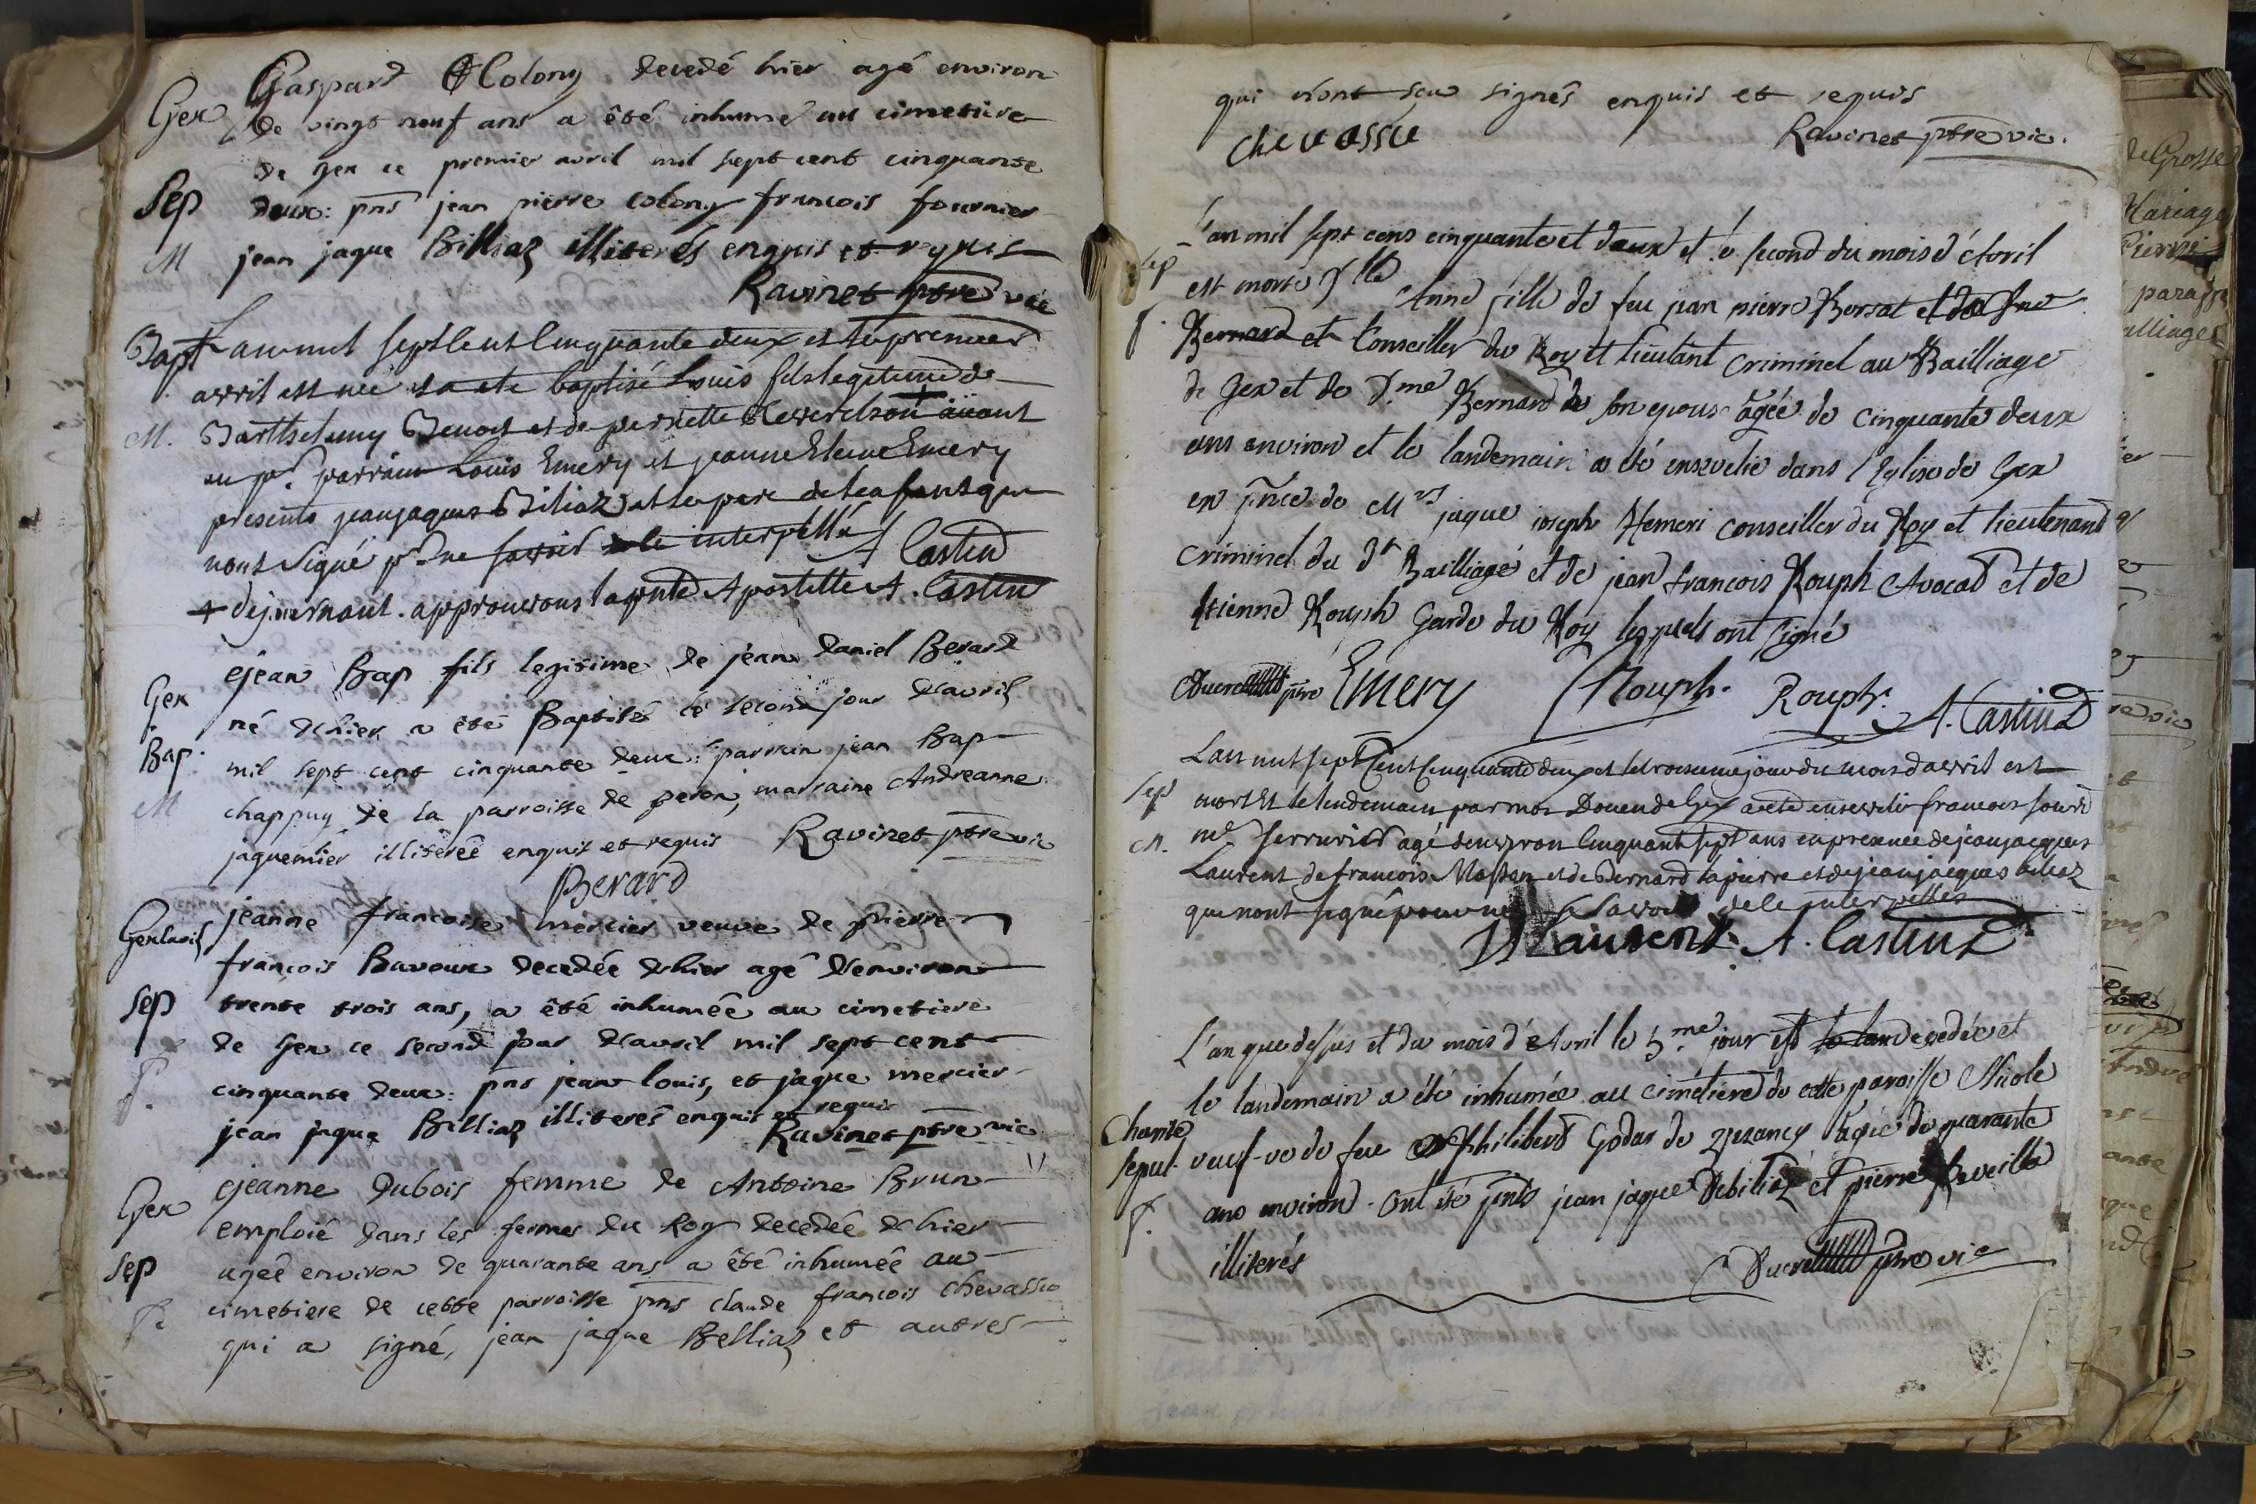 Gaspard Colony decedé hier agé environ
Gex de vingt neuf ans a été inhumé au cimetiere
de gex ce premier avril mil sept cent cinquante
Sep deux: pns jean pierre colony francois fournier
M jean jaque Billiaz illiterés enquis et requis
Ravinet ptre vic
Bapt L'an mil sept cent cinquante deux et le premier
avril est né et a ete baptisé Louis fils legitime de
M. Barthelemy Benoit et de pernette + aiant
eu pr. parrain Louis Emery et jeanne Emery
presents jean jaques Biliaz et le pere de lenfant qui
nont signé pr. ne savoir de ce interpellé A Castin
+ approuvons apostille A. Castin
jean Bap fils legitime de jean daniel Berard
Gex né d'hier a été Baptisé ce second jour d'avril
Bap. mil sept cent cinquante deux: parrain jean Bap
M chappuy de la parroisse de peron, marraine Andreanne
jaquemier illiterée enquis et requis Ravinet ptre vic
Berard
Gex jeanne francoise mercier veuve de pierre
francois Bavoux decedée d'hier agé d'environ
sep trente trois ans, a été inhumée au cimetiere
de Gex ce second jour d'avril mil sept cent
f. cinquante deux: pns jean louis, et jaque mercier
jean jaque Billiaz illiterés enquis et requis
Ravinet ptre vic
Gex jeanne dubois femme de Antoine Brun
emploié dans les fermes du Roy decedée d'hier
sep agée environ de quarante ans a été inhumée au
f. cimetiere de cette parroisse pns claude francois chevassu
qui a signé, jean jaque Belliaz et autres
qui n'ont sceu signés enquis et requis
chevassu Ravinet ptre vic.
sep L'an mil sept cens cinquante et deux et le second du mois d'Avril
est morte dlle Anne fille de feu jean pierre Borsat
f. Bernard et Conseiller du Roy et lieutant Criminel au Bailliage
de Gex et de Dme Bernard son epouse agée de cinquante deux
ans environ et le landemain a été ensevelie dans l'Eglise de Gex
en pnce de Mrs jaque joseph Hemeri conseiller du Roy et lieutenand
criminel du dt Bailliage et de jean francois Rouph Avocad et de
Etienne Rouph Garde du Roy lesquels ont signé
ptre Emery Rouph. Rouph. A. Castin
L'an mil sept cent cinquante deux et le troisieme jour du mois d'avril est
sep mort et le lendemain par moi Doyen de Gex a été enseveli francois
M. me serrurier agé denviron cinquante sept ans en presence de jean jacques
Laurent de francois et de Bernard lapierre et de jean jacques biliaz
qui nont signé pour ne savoir de ce interpellés
Laurent A. Castin
L'an que dessus et du mois d'Avril le 5.me jour est decedée et
le landemain a été inhumée au cimétiere de cette paroisse Nicole
Charité
sepul. veuf-ve de feu philibert Godar de agée de quarante
f. ans environ. Ont été pnts jean jaque Debiliaz et pierre Reveille
illiterés
ptre vic